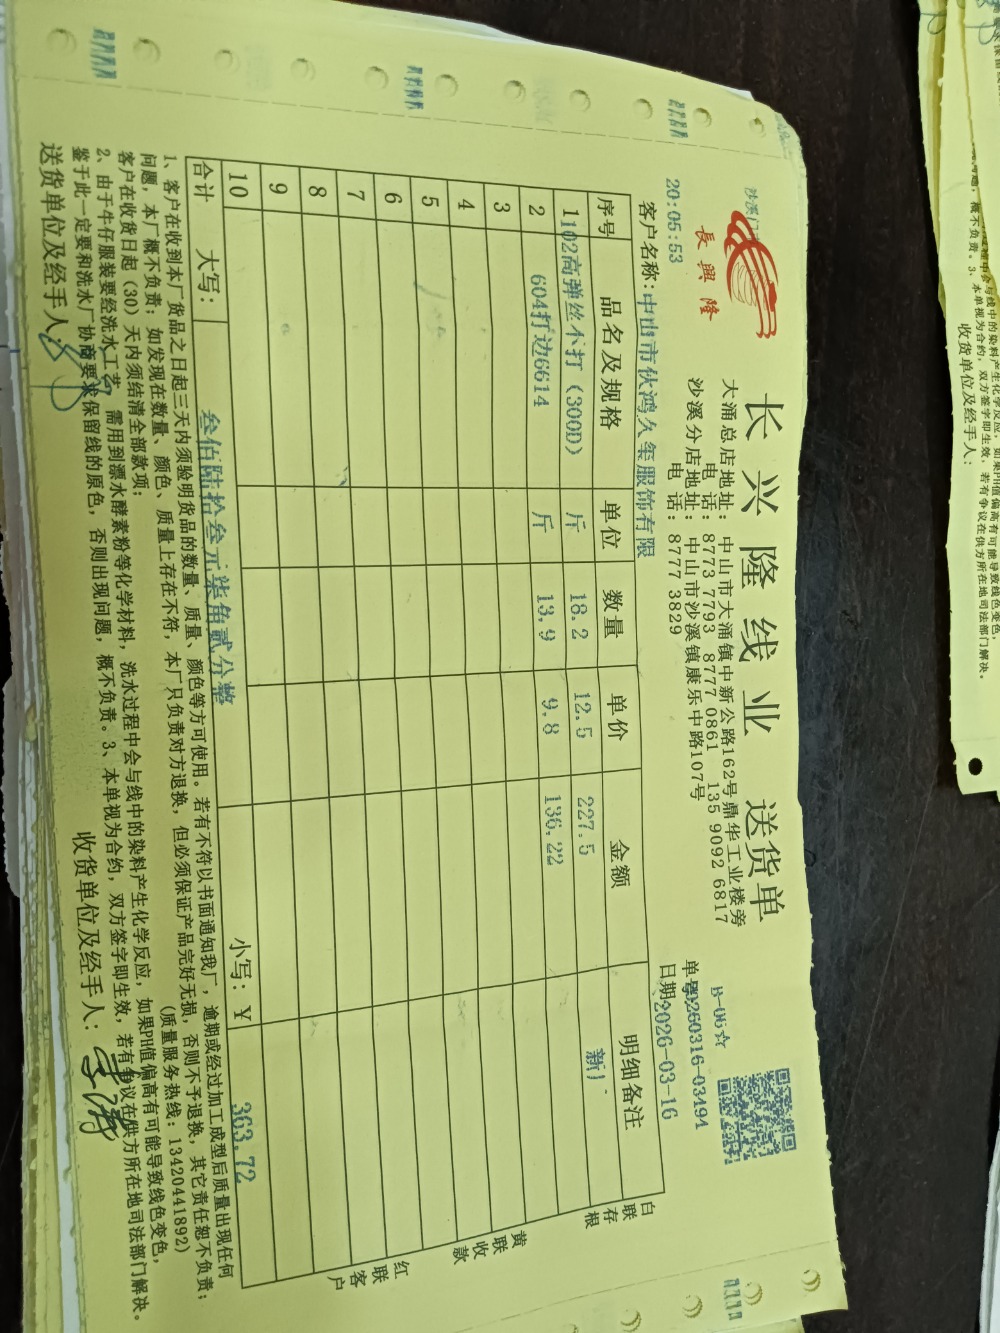 長興隆
长兴隆线业 送货单
B-06☆
大涌总店地址：中山市大涌镇中新公路162号鼎华工业楼旁
电话：8773 7793 8777 0861 135 9092 6817
沙溪分店地址：中山市沙溪镇康乐中路107号
电话：8777 3829
20:05:53
单号:20260316-03494
客户名称：中山市伙鸿久玺服饰有限
日期:2026-03-16
序号 品名及规格 单位 数量 单价 金额 明细备注
1 1102高弹丝不打（300D） 斤 18.2 12.5 227.5 新厂
2 604打边6614 斤 13.9 9.8 136.22
3
4
5
6
7
8
9
10
合计 大写：叁佰陆拾叁元柒角贰分整 小写：￥ 363.72
白联存根
黄联收款
红联客户
1、客户在收到本厂货品之日起三天内须验明货品的数量、质量、颜色等方可使用。若有不符以书面通知我厂，逾期或经过加工成型后质量出现任何
问题，本厂概不负责；如发现在数量、颜色、质量上存在不符，本厂只负责对方退换，但必须保证产品完好无损，否则不予退换，其它责任恕不负责；
客户在收货日起（30）天内须结清全部款项； （质量服务热线：13420441892）
2、由于牛仔服装要经洗水工艺，需用到漂水酵素粉等化学材料，洗水过程中会与线中的染料产生化学反应，如果PH值偏高有可能导致线色变色，
鉴于此一定要和洗水厂协商要求保留线的原色，否则出现问题，概不负责。3、本单视为合约，双方签字即生效，若有争议在供方所在地司法部门解决。
送货单位及经手人：
收货单位及经手人：